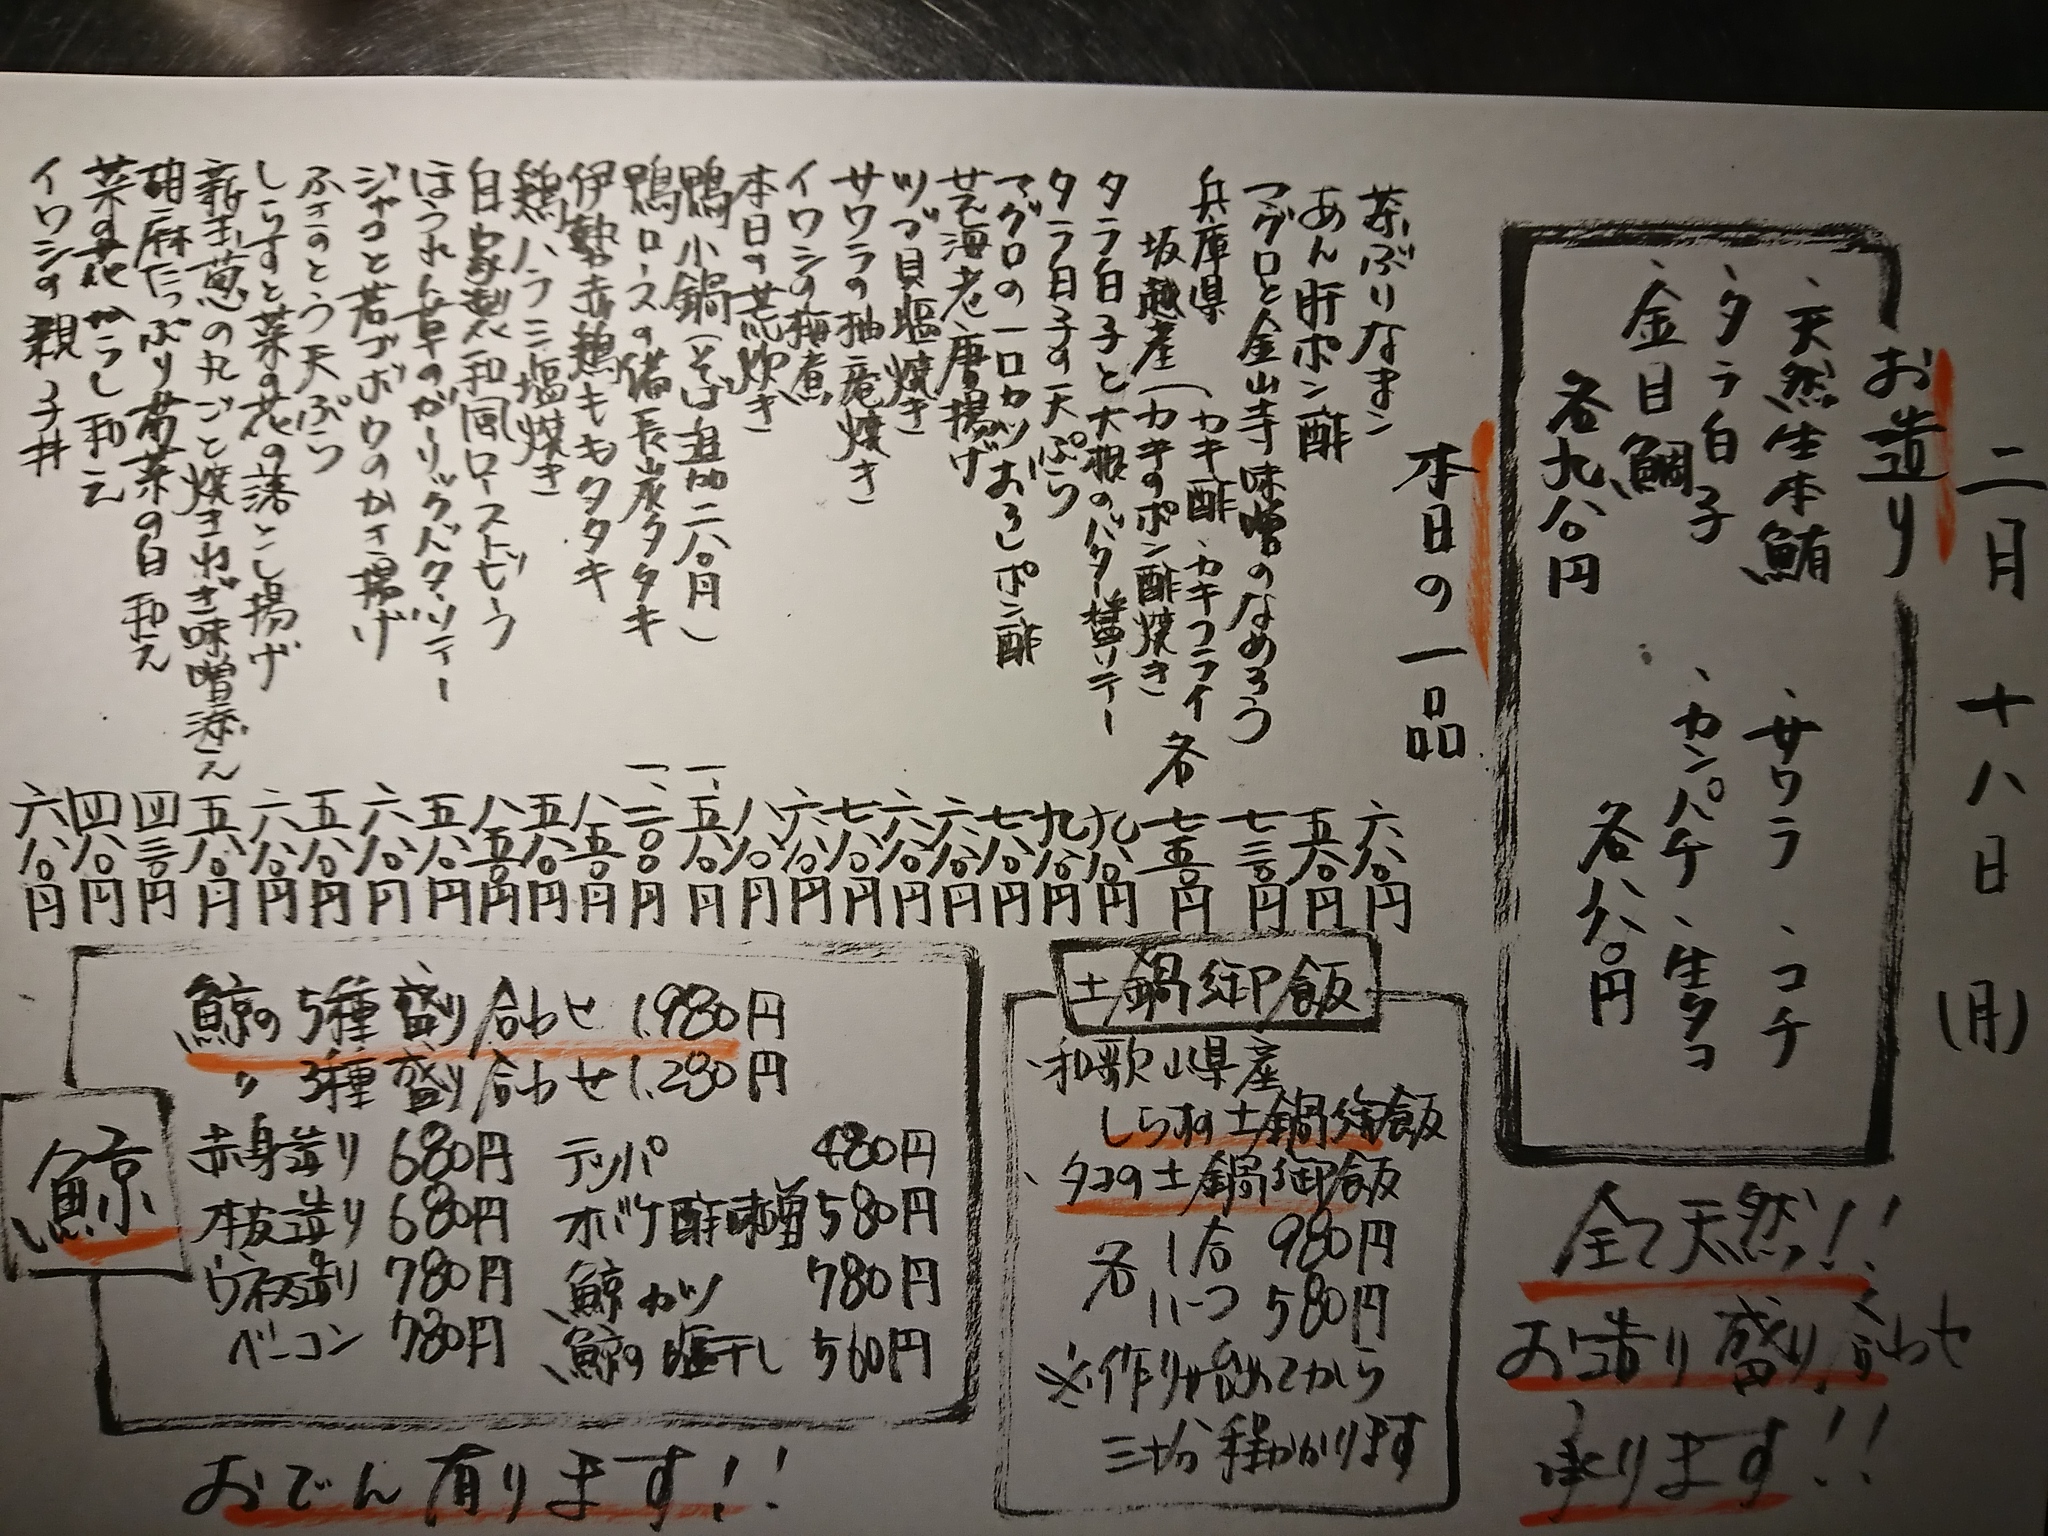 二月 十八日 (月)
お造り
、天然生本鮪 、サワラ 、コチ
、タラ白子 、カンパチ 、生タコ
、金目鯛 各八八〇円
各九八〇円
全て天然!!
お造り盛り合わせ
承ります!!
本日の一品
茶ぶりなまこ 六八〇円
あん肝ポン酢 五八〇円
マグロと金山寺味噌のなめろう 七三〇円
兵庫県 (カキ酢、カキフライ
坂越産 (カキのポン酢焼き 各 七五〇円
タラ白子と大根のバター醤ソテー 九八〇円
タラ白子の天ぷら 九八〇円
マグロの一口カツおろしポン酢 七八〇円
芝海老唐揚げ 六八〇円
ツブ貝塩焼き 六八〇円
サワラの柚庵焼き 七八〇円
イワシの梅煮 六八〇円
本日の荒炊き 八八〇円
鴨小鍋(そば追加二八〇円) 一、五八〇円
鴨ロースの備長炭タタキ 一、二〇〇円
伊勢赤鶏ももタタキ 八五〇円
鶏ハラミ塩焼き 五八〇円
自家製和風ローストビーフ 八五〇円
ほうれん草のガーリックバターソテー 五八〇円
ジャコと若ゴボウのかき揚げ 六八〇円
ふきのとう天ぷら 五八〇円
しらすと菜の花の落とし揚げ 六八〇円
新玉葱の丸ごと焼きねぎ味噌添え 五八〇円
胡麻たっぷり菊菜の白和え 四三〇円
菜の花からし和え 四八〇円
イワシの親子丼 六八〇円
土鍋御飯
、和歌山県産
しらすの土鍋御飯
、タコの土鍋御飯
各 1合 980円
ハーフ 580円
※作り始めてから
三十分程かかります
鯨
鯨の5種盛り合わせ 1,980円
〃 3種盛り合わせ 1,280円
赤身造り 680円 テッパ 480円
本皮造り 680円 オバケ酢味噌 580円
ウネス造り 780円 鯨カツ 780円
ベーコン 780円 鯨の塩干し 560円
おでん有ります!!